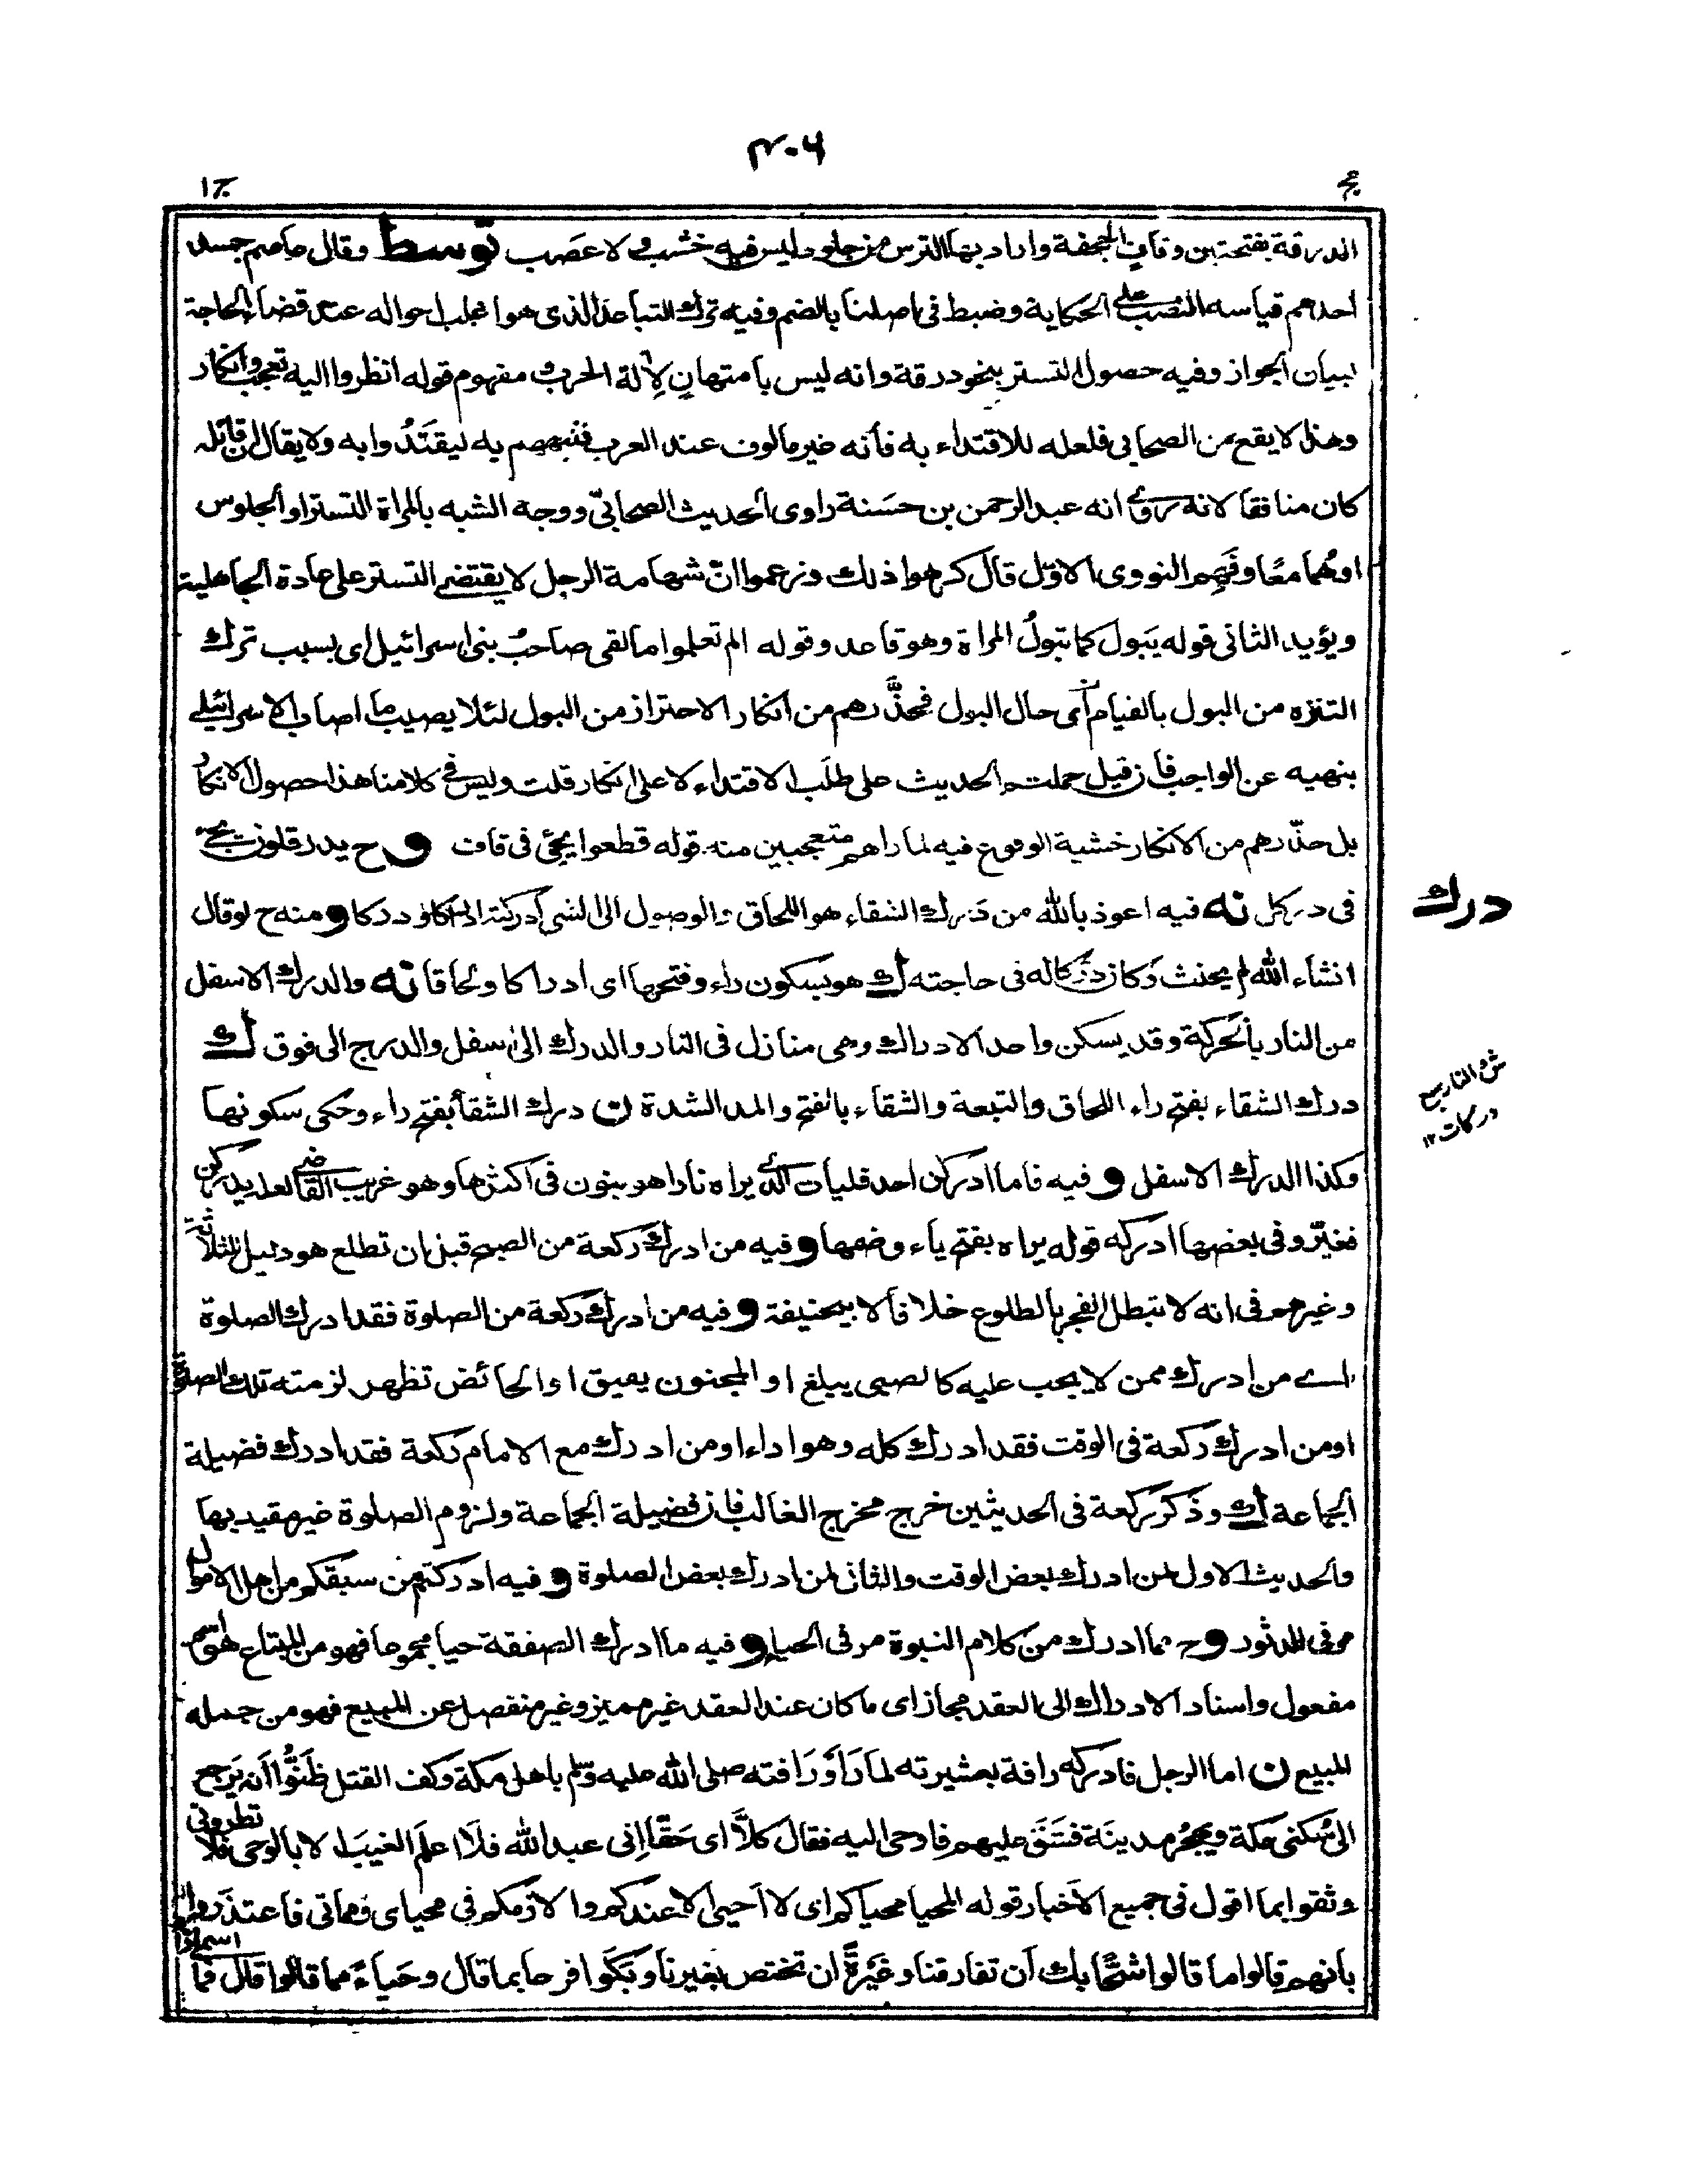 ٤٠٦
مج
ج ١
الدرقة بفتحتين وقاف الحجفة واراد بها الترس من جلود ليس فيه خشب ولا عصب توسط وقال عاصم جسد
احدهم قياسه النصب على الحكاية وضبط في اصلنا بالضم وفيه ترك التباعد الذى هو اغلب احواله عند قضاء الحاجة
لبيان الجواز وفيه حصول التستر بنحو درقة وانه ليس بامتهانٍ لِآلة الحرب و مفهوم قوله انظروا اليه تعجب وانكار
وهذا لا يقع من الصحابى فلعله للاقتداء به فانه غير مالوف عند العرب فنبههم به ليقتَدُوا به ولا يقال ان قائله
كان منافقا لانه روى انه عبد الرحمن بن حسَنة راوى الحديث الصحابىّ ووجه الشبه بالمراة التستر او الجلوس
او هُما معًا وفَهِم النووى الاوّل قال كرهوا ذلك وزعموا انّ شهامة الرجل لا يقتضى التستر على عادة الجاهلية
ويؤيد الثانى قوله يَبول كما تبولُ المراة وهو قاعد وقوله الم تعلموا ما لقى صاحبُ بنى اسرائيل اى بسبب ترك
التنزه من البول بالقيام اى حال البول فحذَّرهم من انكار الاحتراز من البول لئلا يصيب ما اصاب الاسرائيلى
بنهيه عن الواجب فان قيل حملت الحديث على طلَب الاقتداء لا على انكار قلت وليس فى كلامنا هذا حصول الانكار
بل حذّرهم من الانكار خشية الوقوع فيه لما راهم متعجبين منه قوله قطعوا يجئ فى قاف و ح يدرقلون يجئ
فى دركل نه فيه اعوذ بالله من دَرك الشقاء هو اللحاق والوصول الى الشئ ادركته ادراكا ودركا و منه ح لو قال
انشاء الله لم يحنث وكان دركا له فى حاجته ك هو بسكون راء وفتحها اى ادراكا ولحاقا نه والدرك الاسفل
درك
من النار بالحركة وقد يسكن واحد الادراك وهى منازل فى النار والدرك الى اسفل والدرج الى فوق ك
ش و النار سبع
دركات ١٢
درك الشقاء بفتح راء اللحاق والتبعة والشقاء بالفتح والمد الشدة ن درك الشقا بفتح راء وحكى سكونها
وكذا الدرك الاسفل و فيه فاما ادركن احد فليات الذى يراه نارا هو بنون فى اكثرها وهو غريب القاضى لعله يدركن
فغيّر وفى بعضها ادركه قوله يراه بفتح ياء وضمها و فيه من ادرك ركعة من الصبح قبل ان تطلع هو دليل للثلاثة
وغيرهم فى انه لا تبطل الفجر بالطلوع خلافا لابيحنيفة و فيه من ادرك ركعة من الصلوة فقد ادرك الصلوة
اى من ادرك ممن لا يجب عليه كالصبى يبلغ او المجنون يفيق او الحائض تظهر لزمته تلك الصلوة
او من ادرك ركعة فى الوقت فقد ادرك كله وهو اداء او من ادرك مع الامام ركعة فقد ادرك فضيلة
الجماعة ك وذكر ركعة فى الحديثين خرج مخرج الغالب فان فضيلة الجماعة ولزوم الصلوة غير مقيد بها
والحديث الاول لمن ادرك بعض الوقت والثانى لمن ادرك بعض الصلوة و فيه ادركتم من سبقكم من اهل الاموال
مر فى الدثور و ح مما ادرك من كلام النبوة مر فى الحياء و فيه ما ادرك الصفقة حيا مجموعا فهو من المبتاع هو اسم
مفعول واسناد الادراك الى العقد مجاز اى ما كان عند العقد غير مميز وغير منفصل عن المبيع فهو من جملة
المبيع ن اما الرجل فادركه رافة بعشيرته لما رَاَوْ رَافته صلى الله عليه وسلم باهل مكة وكف القتل ظَنُّوا اَنه يَرجع
الى سُكنى مكة ويهجُر مدينَة فشَقَّ عليهم فاوحى اليه فقال كلَّا اى حَقًّا اِنى عبد الله فلَا اعلَم الغيبَ الا بالوحى فلا تطرونى
وثقوا بما اقول فى جميع الاَخبار قوله المحيا محياكم اى لا اَحيى الا عندكم ولا لازمكم فى محياى ومماتى فاعتذَروا
بانهم قالوا ما قالوا شحًّا بك اَن تفارقنا وغَيْرةً ان تختص بغيرنا وبَكَوا فرحا بما قال وحَياءً مما قالوا قال فما اسمى اذا